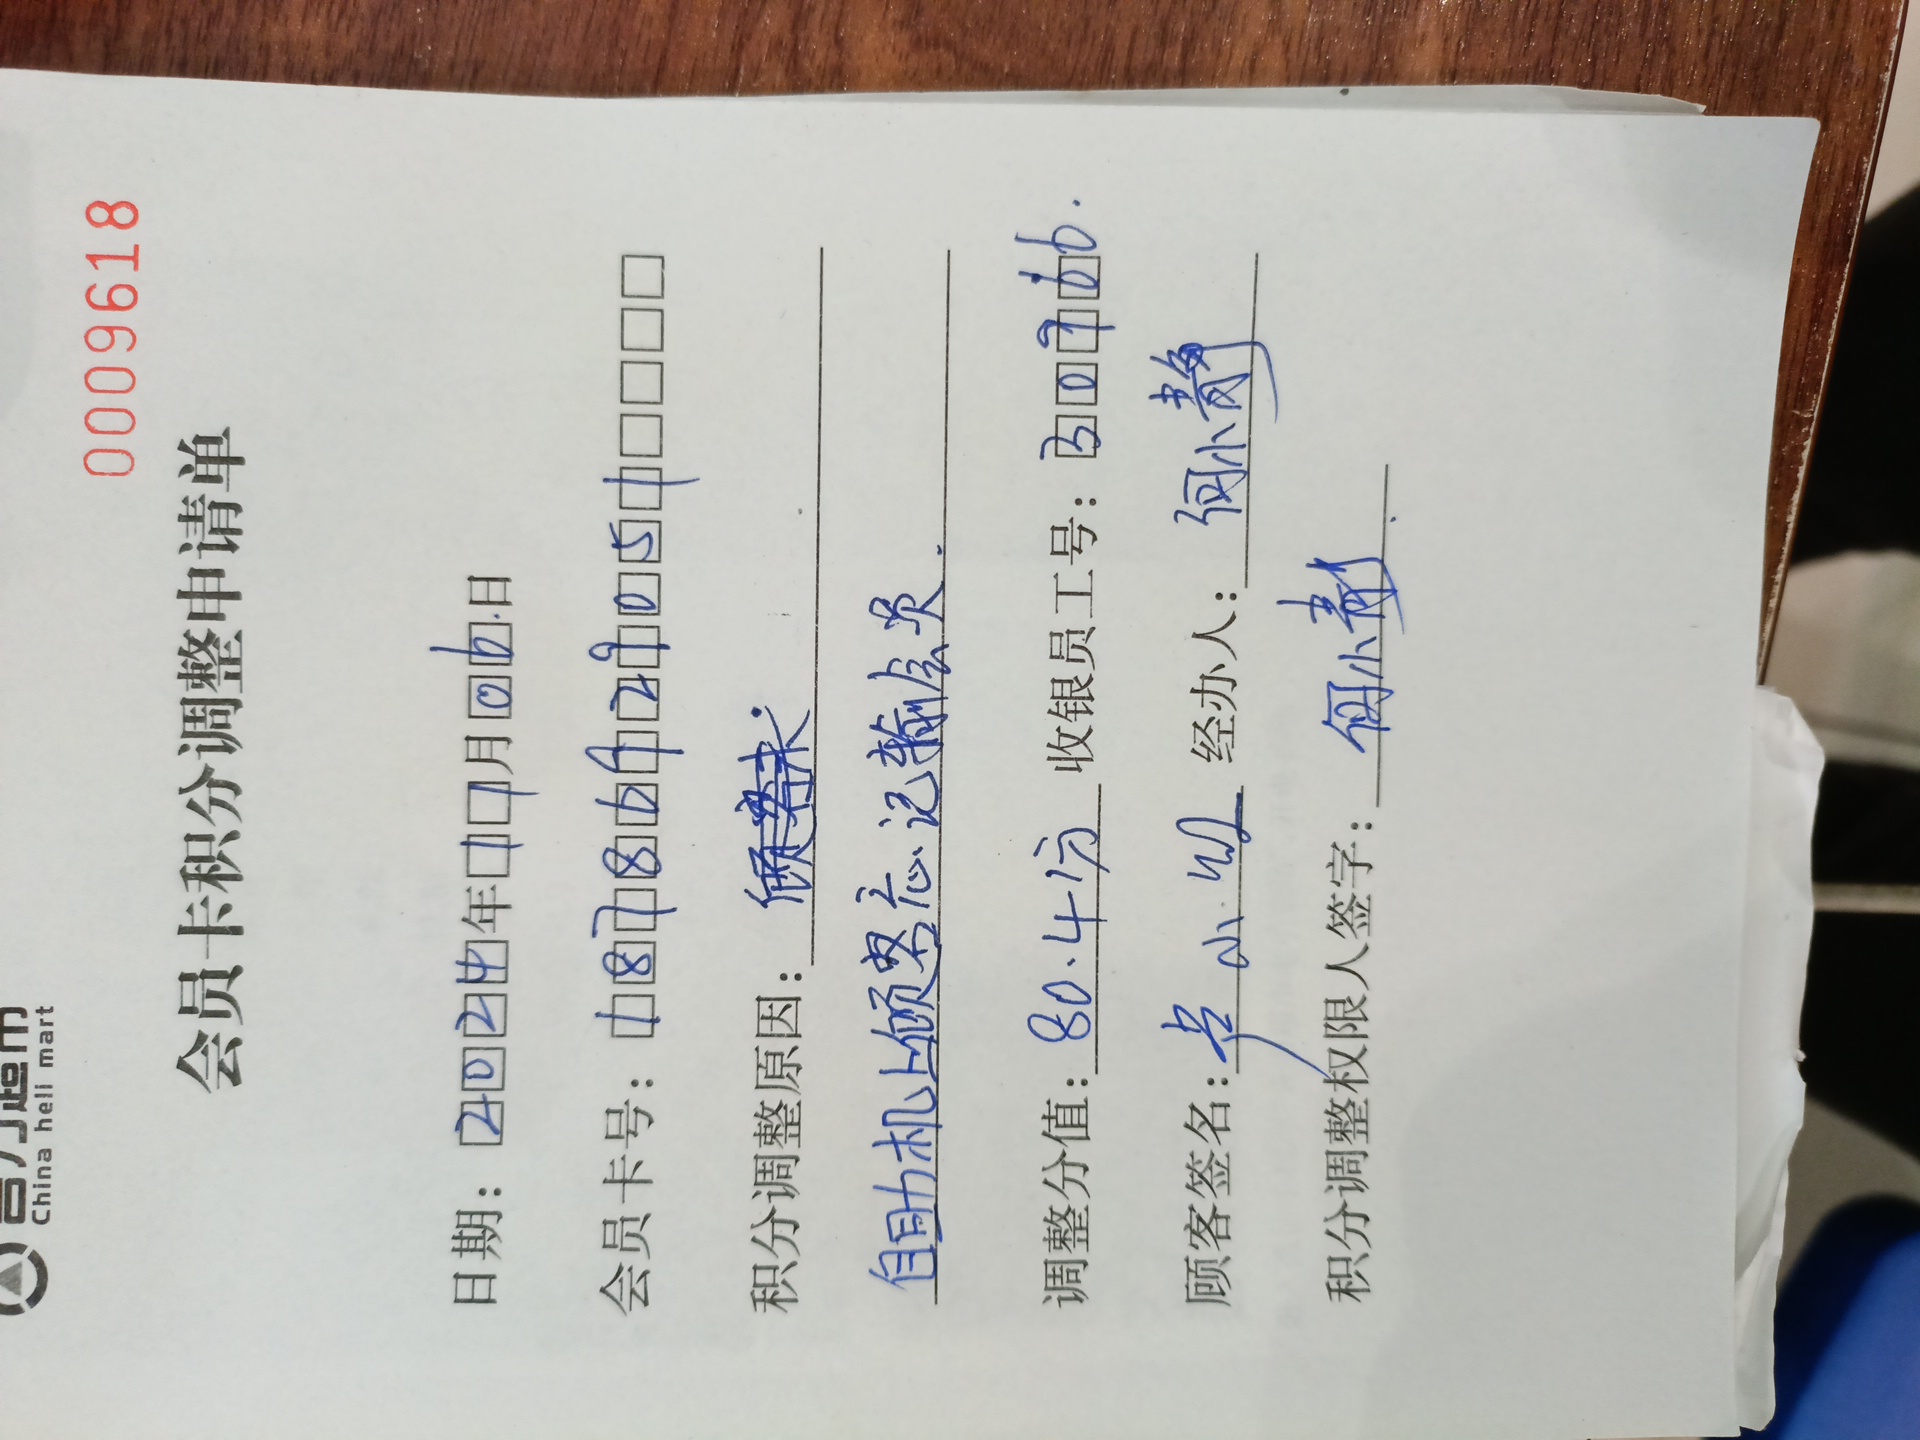 China heli mart
0009618
会员卡积分调整申请单
日期：2024年11月06日
会员卡号：18786929051
积分调整原因：
自助机上顾客忘记输会员.
调整分值：80.4分 收银员工号：30966.
顾客签名： 经办人：何小静
积分调整权限人签字：何小静